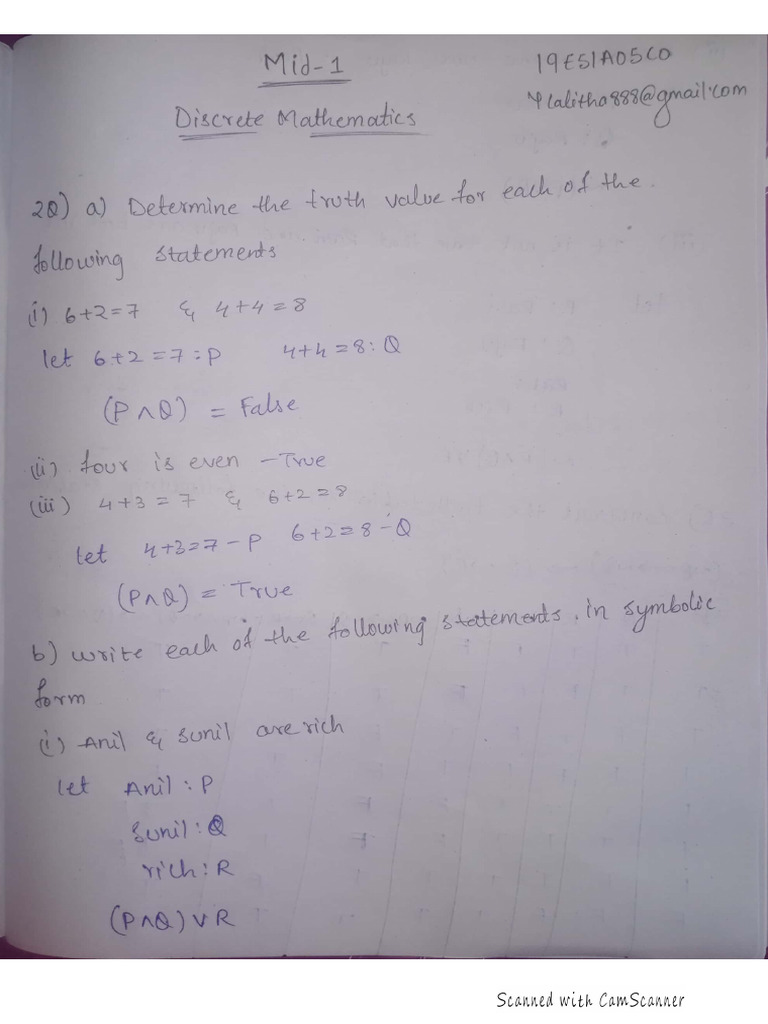 Mid-1
19E51A05C0
Ylalitha888@gmail.com
Discrete Mathematics
2Q) a) Determine the truth value for each of the
following statements
(i) 6+2=7 & 4+4=8
let 6+2=7:P 4+4=8:Q
(P∧Q) = False
(ii) four is even - True
(iii) 4+3=7 & 6+2=8
let 4+3=7-P 6+2=8-Q
(P∧Q) = True
b) write each of the following statements, in symbolic
form
(i) Anil & Sunil are rich
let Anil: P
Sunil: Q
rich: R
(P∧Q) ∨ R
Scanned with CamScanner